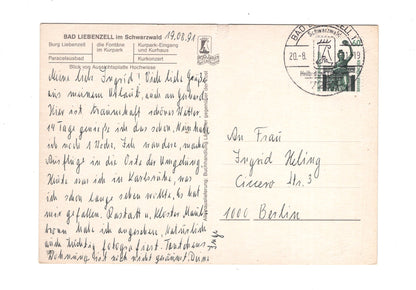 BAD LIEBENZELL im Schwarzwald 19.08.91
Burg Liebenzell die Fontäne im Kurpark Kurpark-Eingang und Kurhaus
Paracelsusbad Kurkonzert
Blick von Aussichtsplatte Hochwiese
Meine liebe Ingrid! Viele liebe Grüße
aus meinem Urlaub, auch an Gerhard.
Hier ist traumhaft schönes Wetter.
14 Tage genieße ich das schon, Nun habe
ich noch 1 Woche. Ich wandere, mache
Ausflüge in die Orte der Umgebung.
Heute war ich in Karlsruhe, was
ich schon lange sehen wollte, Es hat
mir gefallen. Rastatt u. Kloster Maul-
bronn habe ich angesehen, Natürlich
auch tüchtig fotografiert.
Wohnung ist noch nicht geräumt. Deine
Inge
BAD LIEBENZELL
Schwarzwald
20.-8.
An Frau
Ingrid Heling
Cicero Str. 3
1000 Berlin